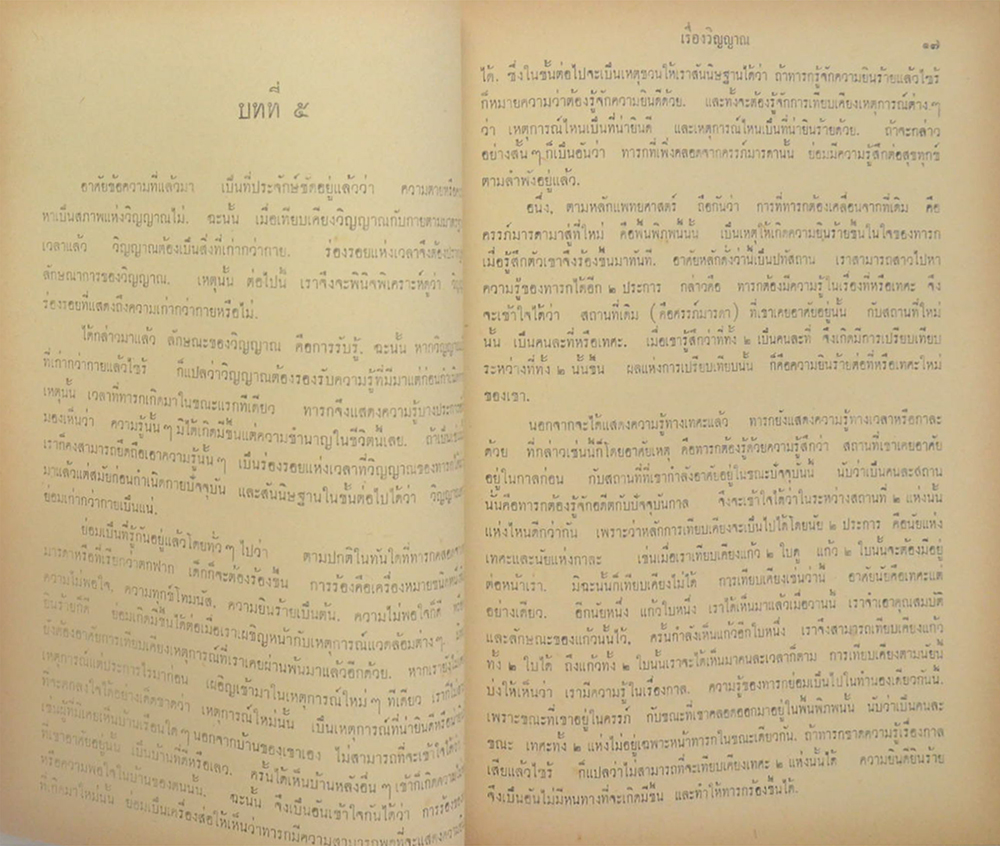 บทที่ ๕
อาศัยข้อความที่แล้วมา เป็นที่ประจักษ์ชัดอยู่แล้วว่า ความตายหรือ
หาเป็นสภาพแห่งวิญญาณไม่. ฉะนั้น เมื่อเทียบเคียงวิญญาณกับกายตาม
เวลาแล้ว วิญญาณต้องเป็นสิ่งที่เก่ากว่ากาย. ร่องรอยแห่งเวลาจึงต้อง
ลักษณาการของวิญญาณ. เหตุนั้น ต่อไปนี้ เราจึงจะพินิจพิเคราะห์ดูว่า
ร่องรอยที่แสดงถึงความเก่ากว่ากายหรือไม่.
ได้กล่าวมาแล้ว ลักษณะของวิญญาณ คือการรับรู้. ฉะนั้น หากวิญญาณ
ที่เก่ากว่ากายแล้วไซร้ ก็แปลว่าวิญญาณต้องรองรับความรู้ที่มีมาแต่ก่อน
เหตุนั้น เวลาที่ทารกเกิดมาในขณะแรกทีเดียว ทารกจึงแสดงความรู้บางประการ
มองเห็นว่า ความรู้นั้น ๆ มิได้เกิดมีขึ้นแต่ความชำนาญในชีวิตนี้เลย. ถ้าเป็น
เราก็คงสามารถยึดถือเอาความรู้นั้น ๆ เป็นร่องรอยแห่งเวลาที่วิญญาณของทารก
มาแล้วแต่สมัยก่อนกำเนิดกายปัจจุบัน และสันนิษฐานในขั้นต่อไปได้ว่า วิญญาณ
ย่อมเก่ากว่ากายเป็นแน่.
ย่อมเป็นที่รู้กันอยู่แล้วโดยทั่ว ๆ ไปว่า ตามปกติในทันใดที่ทารกคลอด
มารดาหรือที่เรียกว่าตกฟาก เด็กก็จะต้องร้องขึ้น การร้องคือเครื่องหมายชนิดหนึ่ง
ความไม่พอใจ, ความทุกข์โทมนัส, ความยินร้ายเป็นต้น. ความไม่พอใจก็ดี
ยินร้ายก็ดี ย่อมเกิดมีขึ้นได้ต่อเมื่อเราเผชิญหน้ากับเหตุการณ์แวดล้อมต่าง ๆ.
ยังต้องอาศัยการเทียบเคียงเหตุการณ์ที่เราเคยผ่านพ้นมาแล้วอีกด้วย. หากเรายัง
เหตุการณ์แต่ประการไรมาก่อน เผชิญเข้ามาในเหตุการณ์ใหม่ ๆ ทีเดียว เราก็
ที่จะตกลงใจได้อย่างเด็ดขาดว่า เหตุการณ์ใหม่นั้น เป็นเหตุการณ์ที่น่ายินดีหรือ
เช่นผู้ที่มิเคยเห็นบ้านเรือนใด ๆ นอกจากบ้านของเขาเอง ไม่สามารถที่จะเข้าใจได้
ที่เขาอาศัยอยู่นั้น เป็นบ้านที่ดีหรือเลว. ครั้นได้เห็นบ้านหลังอื่น ๆ เข้าก็เกิดความ
หรือความพอใจในบ้านของตนนั้น. ฉะนั้น จึงเป็นอันเข้าใจกันได้ว่า การร้องของ
ที่เกิดมาใหม่นั้น ย่อมเป็นเครื่องส่อให้เห็นว่าทารกมีความสามารถพอที่จะแสดง
เรื่องวิญญาณ ๑๗
ได้. ซึ่งในขั้นต่อไปจะเป็นเหตุชวนให้เราสันนิษฐานได้ว่า ถ้าทารกรู้จักความยินร้ายแล้วไซร้
ก็หมายความว่าต้องรู้จักความยินดีด้วย. และทั้งจะต้องรู้จักการเทียบเคียงเหตุการณ์ต่าง ๆ
ว่า เหตุการณ์ไหนเป็นที่น่ายินดี และเหตุการณ์ไหนเป็นที่น่ายินร้ายด้วย. ถ้าจะกล่าว
อย่างสั้น ๆ ก็เป็นอันว่า ทารกที่เพิ่งคลอดจากครรภ์มารดานั้น ย่อมมีความรู้สึกต่อสุขทุกข์
ตามลำพังอยู่แล้ว.
อนึ่ง, ตามหลักแพทยศาสตร์ ถือกันว่า การที่ทารกต้องเคลื่อนจากที่เดิม คือ
ครรภ์มารดามาสู่ที่ใหม่ คือพื้นพิภพนี้นั้น เป็นเหตุให้เกิดความยินร้ายขึ้นในใจของทารก
เมื่อรู้สึกตัวเข้าจึงร้องขึ้นมาทันที. อาศัยหลักดั่งว่านี้เป็นปทัสถาน เราสามารถสาวไปหา
ความรู้ของทารกได้อีก ๒ ประการ กล่าวคือ ทารกต้องมีความรู้ในเรื่องที่หรือเทศะ จึง
จะเข้าใจได้ว่า สถานที่เดิม (คือครรภ์มารดา) ที่เขาเคยอาศัยอยู่นั้น กับสถานที่ใหม่
นั้น เป็นคนละที่หรือเทศะ. เมื่อเขารู้สึกว่าที่ทั้ง ๒ เป็นคนละที่ จึงเกิดมีการเปรียบเทียบ
ระหว่างที่ทั้ง ๒ นั้นขึ้น ผลแห่งการเปรียบเทียบนั้น ก็คือความยินร้ายต่อที่หรือเทศะใหม่
ของเขา.
นอกจากจะได้แสดงความรู้ทางเทศะแล้ว ทารกยังแสดงความรู้ทางเวลาหรือกาละ
ด้วย ที่กล่าวเช่นนี้ก็โดยอาศัยเหตุ คือทารกต้องรู้ด้วยความรู้สึกว่า สถานที่เขาเคยอาศัย
อยู่ในกาลก่อน กับสถานที่ที่เขากำลังอาศัยอยู่ในขณะปัจจุบันนี้ นับว่าเป็นคนละสถาน
นั้นคือทารกต้องรู้จักอดีตกับปัจจุบันกาล จึงจะเข้าใจได้ว่าในระหว่างสถานที่ ๒ แห่งนั้น
แห่งไหนดีกว่ากัน เพราะว่าหลักการเทียบเคียงจะเป็นไปได้โดยนัย ๒ ประการ คือนัยแห่ง
เทศะและนัยแห่งกาละ เช่นเมื่อเราเทียบเคียงแก้ว ๒ ใบดู แก้ว ๒ ใบนั้นจะต้องมีอยู่
ต่อหน้าเรา. มิฉะนั้นก็เทียบเคียงไม่ได้ การเทียบเคียงเช่นว่านี้ อาศัยนัยคือเทศะแต่
อย่างเดียว. อีกนัยหนึ่ง แก้วใบหนึ่ง เราได้เห็นมาแล้วเมื่อวานนี้ เราจำเอาคุณสมบัติ
และลักษณะของแก้วนั้นไว้. ครั้นกำลังเห็นแก้วอีกใบหนึ่ง เราจึงสามารถเทียบเคียงแก้ว
ทั้ง ๒ ใบได้ ถึงแก้วทั้ง ๒ ใบนั้นเราจะได้เห็นมาคนละเวลาก็ตาม การเทียบเคียงตามนัยนี้
บ่งให้เห็นว่า เรามีความรู้ในเรื่องกาล. ความรู้ของทารกย่อมเป็นไปในทำนองเดียวกันนี้.
เพราะขณะที่เขาอยู่ในครรภ์ กับขณะที่เขาคลอดออกมาอยู่ในพื้นพิภพนั้น นับว่าเป็นคนละ
ขณะ เทศะทั้ง ๒ แห่งไม่อยู่เฉพาะหน้าทารกในขณะเดียวกัน. ถ้าทารกขาดความรู้เรื่องกาล
เสียแล้วไซร้ ก็แปลว่าไม่สามารถที่จะเทียบเคียงเทศะ ๒ แห่งนั้นได้ ความยินดียินร้าย
จึงเป็นอันไม่มีหนทางที่จะเกิดมีขึ้น และทำให้ทารกร้องขึ้นได้.